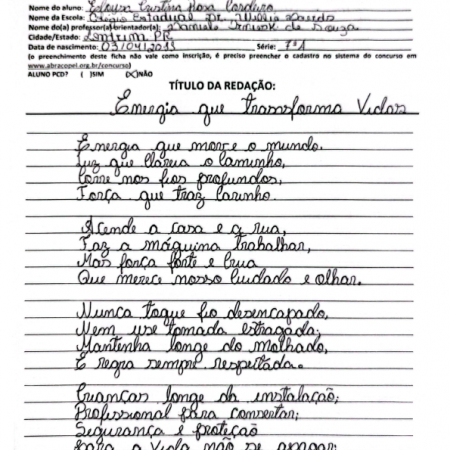 Nome do aluno: Cristina Rosa Cordeiro
Nome da Escola: Colégio Estadual Dr. Willie Davids
Nome do(a) professor(a)/orientador(a): Daniele de Souza
Cidade/Estado: PR
Data de nascimento: 03/04/2013 Série: 7º1
(o preenchimento deste ficha não vale como inscrição, é preciso preencher o cadastro no sistema do concurso em
www.abracopel.org.br/concurso)
ALUNO PCD? ( )SIM (X)NÃO
TÍTULO DA REDAÇÃO:
Energia que transforma Vidas
Energia que move o mundo.
Luz que clareia o caminho,
Corre nos fios profundos,
Força que traz carinho.
Acende a casa e a rua,
Faz a máquina trabalhar,
Mas força forte e crua
Que merece nosso cuidado e olhar.
Nunca toque fio desencapado,
Nem use tomada estragada;
Mantenha longe do molhado,
É regra sempre respeitada.
Crianças longe da instalação;
Profissional para consertar;
Segurança e proteção
Para a Vida não se apagar.